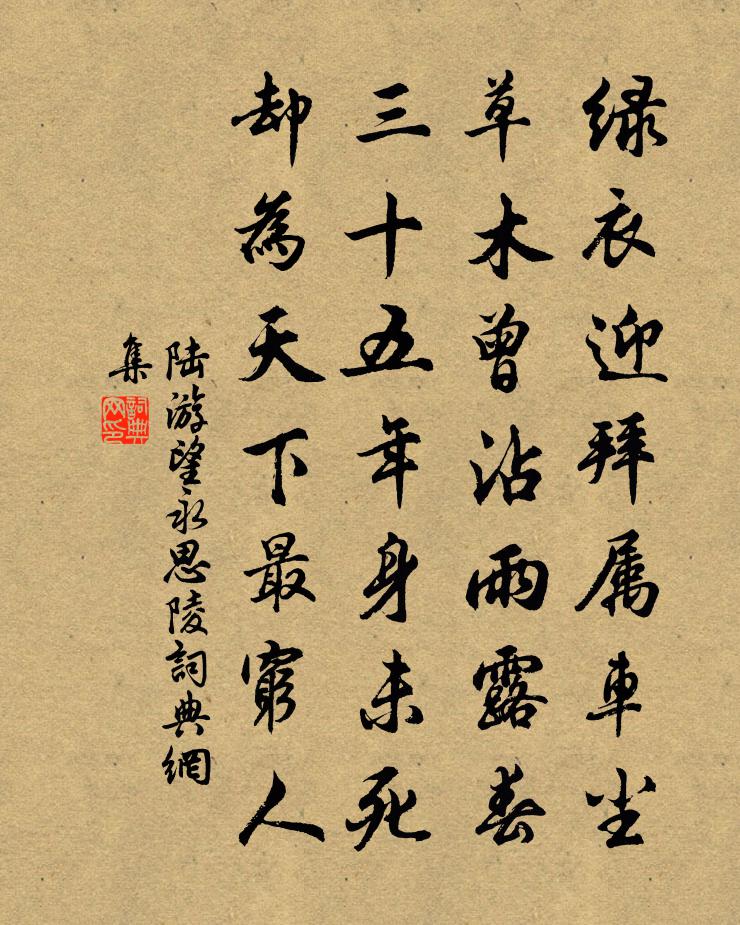 绿衣迎拜属車尘
草木曾沾雨露春
三十五年身未死
却為天下最窮人
陆游望永思陵詞典網
集
詞典网印